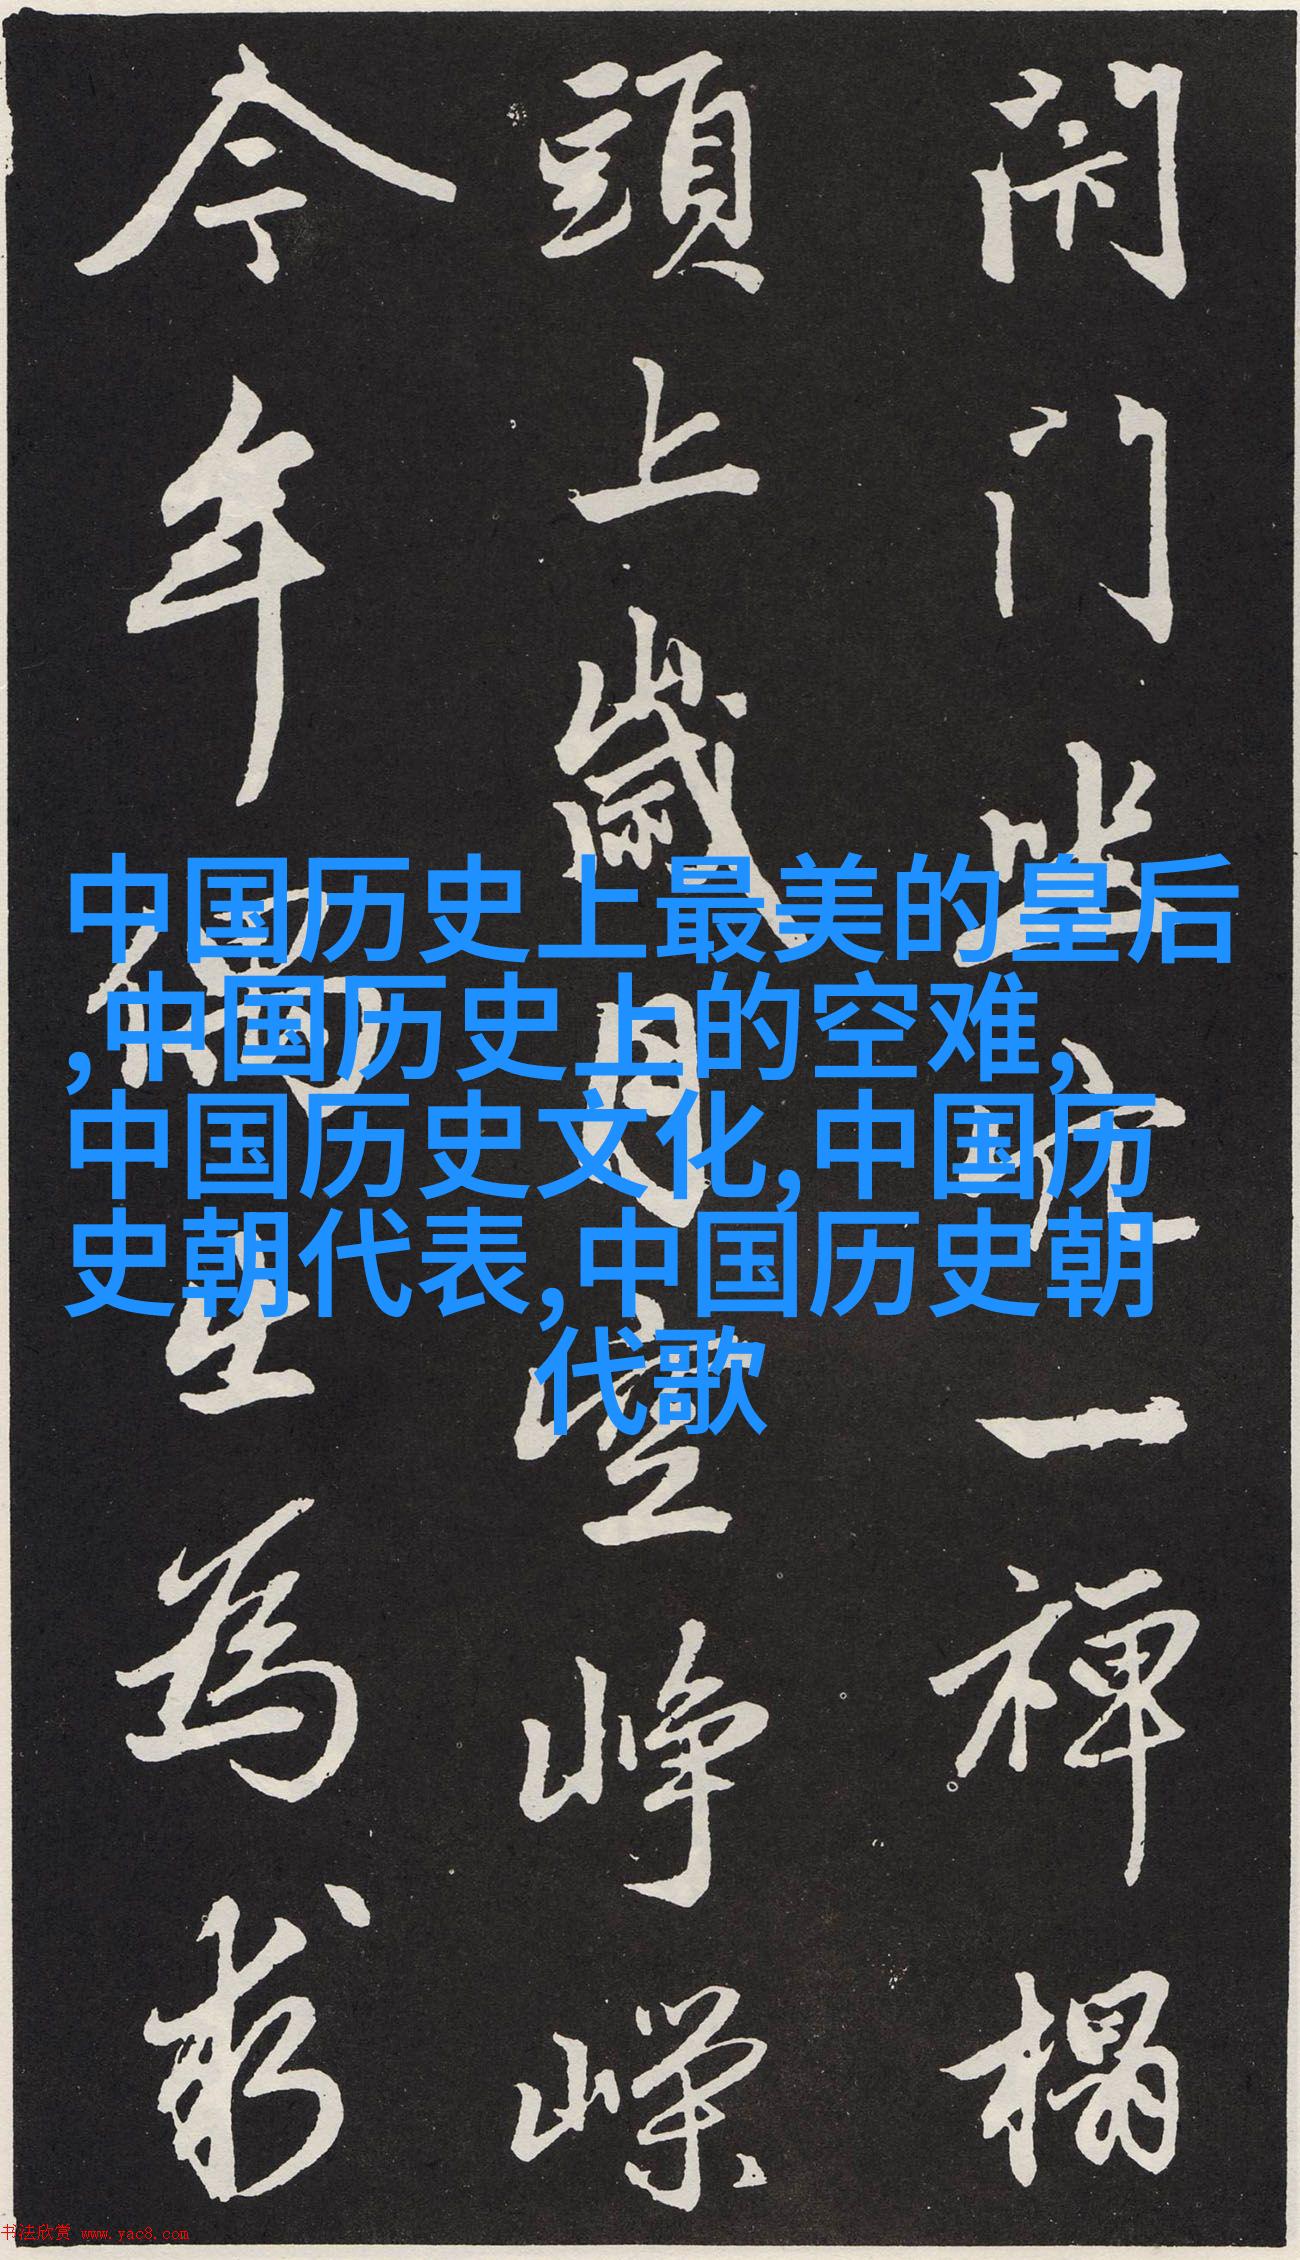 閇門坐穴一禪榻
頭上歲月空崢嶸
今年偶出為求
中国历史上最美的皇后
,中国历史上的空难,
中国历史文化,中国历
史朝代表,中国历史朝
代歌
书法欣赏 www.yac8.com